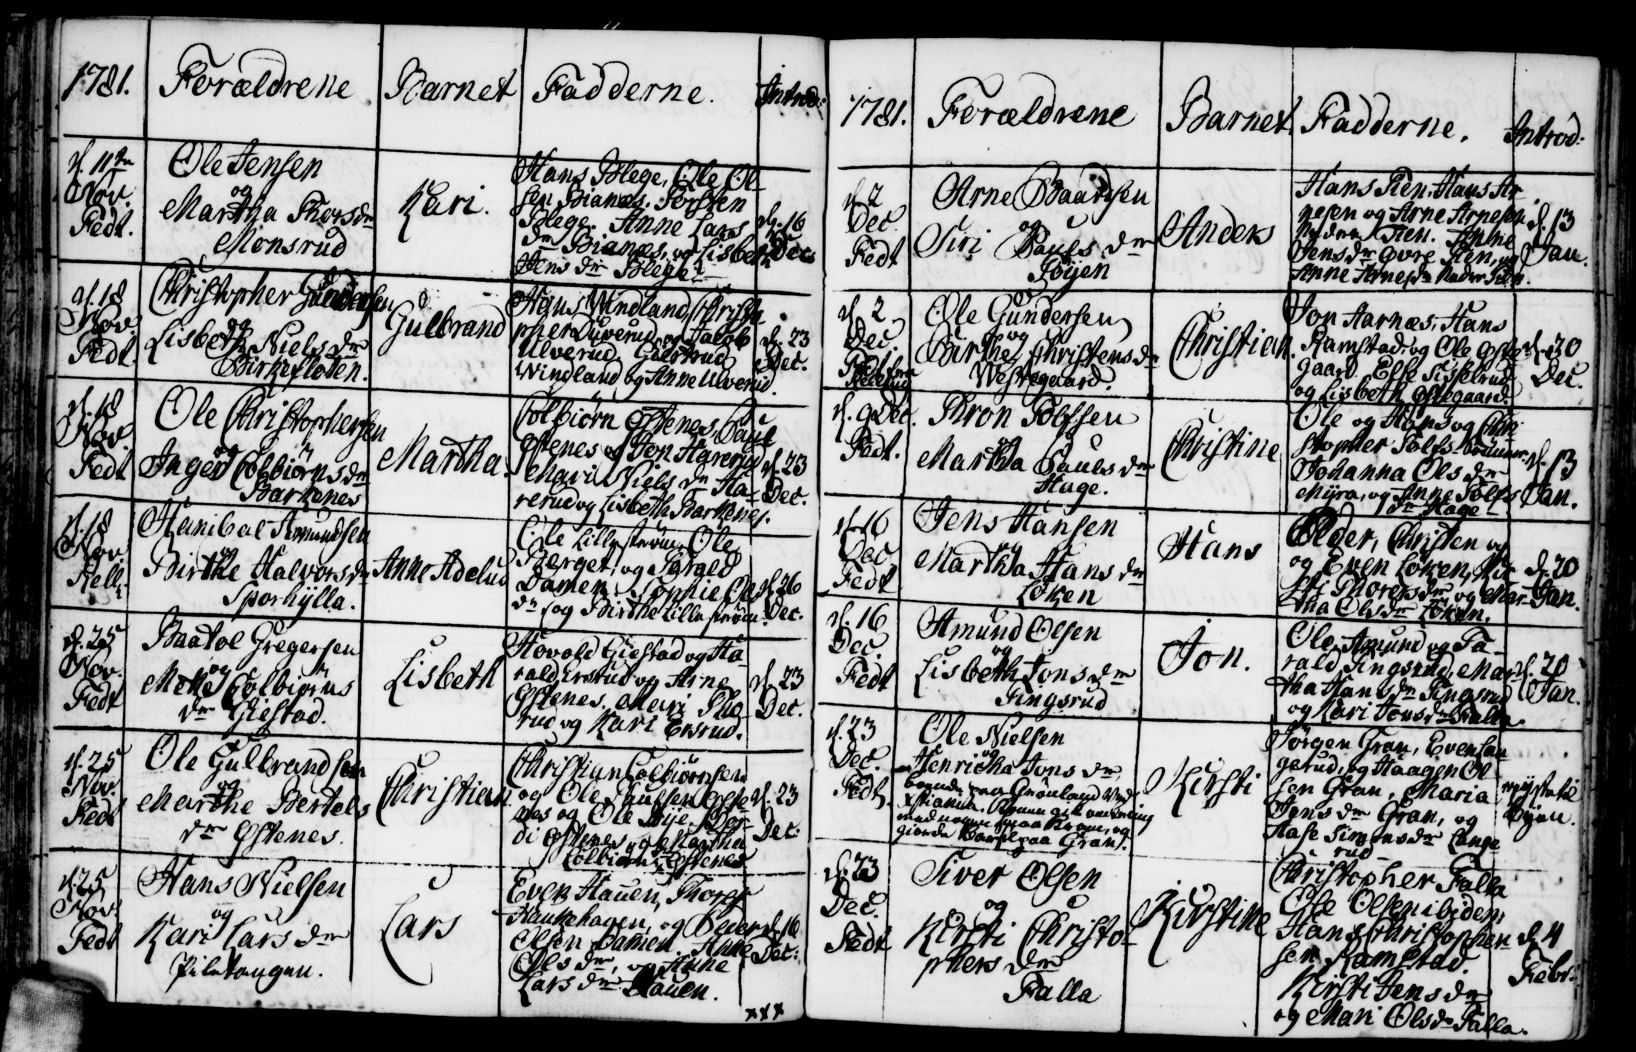 1781. Forældrene Barnet Fadderne. Introd:
d. 11te Nov. Fedt.
Ole Jensen
og
Martha Thorsdr
Monsrud
Kari.
Hans Blege, Ole Ol-
sen Bianæs, Torsten
Blege. Anne Lars
dr Bianæs, og Lisbeth
Jens dr Blege.
d. 16 Dec.
d. 18 Nov. Fedt.
Christopher Gundersen
og
Lisbeth Niels dr
Birkefloten.
Gulbrand
Hans Windland, Christo-
pher Ulverud og Jacob
Ulverud, Giertrud
Windland og Anne Ulverud.
d. 23 Dec.
d. 18 Nov. Fedt
Ole Christophersen
og
Inger Colbiørns dr
Barkenes
Martha.
Colbiørn Østenes, Paul
Østenes og Jon Harerud
Mari Niels dr Ha-
rerud og Lisbeth Barkenes.
d. 23 Dec.
d. 18 Nov. Hell:
Hanibal Amundsen
og
Birthe Halvors dr
Sporhylla.
Anne Adelus
Ole Lillestrøm, Ole
Berger, og Harald
Damen, Sophie Ols
dr og Birthe Lillestrøm.
d. 26 Dec.
d. 25 Nov. Fedt
Baatol Gregersen
og
Mette Colbiørns
dr Giestad.
Lisbeth
Hovold Giestad og Ha-
rald Ersrud og Arne
Østenes, Mari
rud og Kari Ersrud.
d. 23 Dec.
d. 25 Nov. Fedt
Ole Gulbrandsen
og
Marthe Bertels
dr Østenes.
Christian
Christian Colbiørnsen
og Ole Paulsen Øste-
nes og Ole Bye,
di Østenes og Martha
Colbiørns Østenes
d. 23 Dec:
d. 25 Nov. Fedt
Hans Nielsen
og
Kari Lars dr
Piletangen.
Lars
Even Hauen, Thorer
Haukehagen, og Peder
Olsen Damen, Anne
Ols dr, og Anne
Lars dr Hauen.
d. 16 Dec:
1781. Forældrene Barnet Fadderne. Introd:
d. 2 Dec. Fedt
Arne Baardsen
og
Siri Pauls dr
Løyen
Anders
Hans Sien, Hans Ar-
nesen og Arne Arnesen
nedre Sien. Anne
Jens dr øvre Sien, og
Anne Arnes dr Neder Sien.
d. 13 Jan.
d. 2 Dec.
Ole Gundersen
og
Birthe Christens dr
Westegaard.
Christian.
Jon Aarnæs, Hans
Ramstad og Ole Øste-
gaard, Else Sisselrud
og Lisbeth Østegaard.
d. 30 Dec.
d. 9 Dec. Fedt.
Thron Tolfsen
og
Martha Pauls dr
Hage.
Christine
Ole og Hans og Chri-
stopher Tolfs
Johanna Ols dr
Myra, og Anne Tolfs
dr Hage
d. 13 Jan.
d. 16 Dec Fedt
Jens Hansen
og
Martha Hans dr
Loken
Hans
Peder, Christen og
og Even Loken, Kir-
sti Thorers dr og Mar-
tha Ols dr Loken.
d. 20 Jan.
d. 16 Dec. Fedt
Amund Olsen
og
Lisbeth Jons dr
Tingsrud
Jon.
Ole, Amund og Ta-
rald Tingsrud, Mar-
tha Hans dr Tingsrud
og Kari Jons dr Falla.
d. 20 Jan.
d. 23 Dec. Fedt.
Ole Nielsen
og
Henricha Jons dr,
boende paa Grønland ved
Xstiania.
Kirsti
Jørgen Gran, Even Lan-
gerud, og Haagen Ol-
sen Gran, Maria
Jens dr Gran, og
Aase Simens dr Lange
rud
reyste til
Byen.
d. 23 Dec. Fedt
Siver Olsen
og
Kirsti Christo-
phers dr
Falla
Kirstine
Christopher Falla
Ole Olsen ibidem,
Hans Christopher-
sen Ramstad.
Kirsti Jens dr
og Mari Ols dr Falla.
d. 4 Febr: